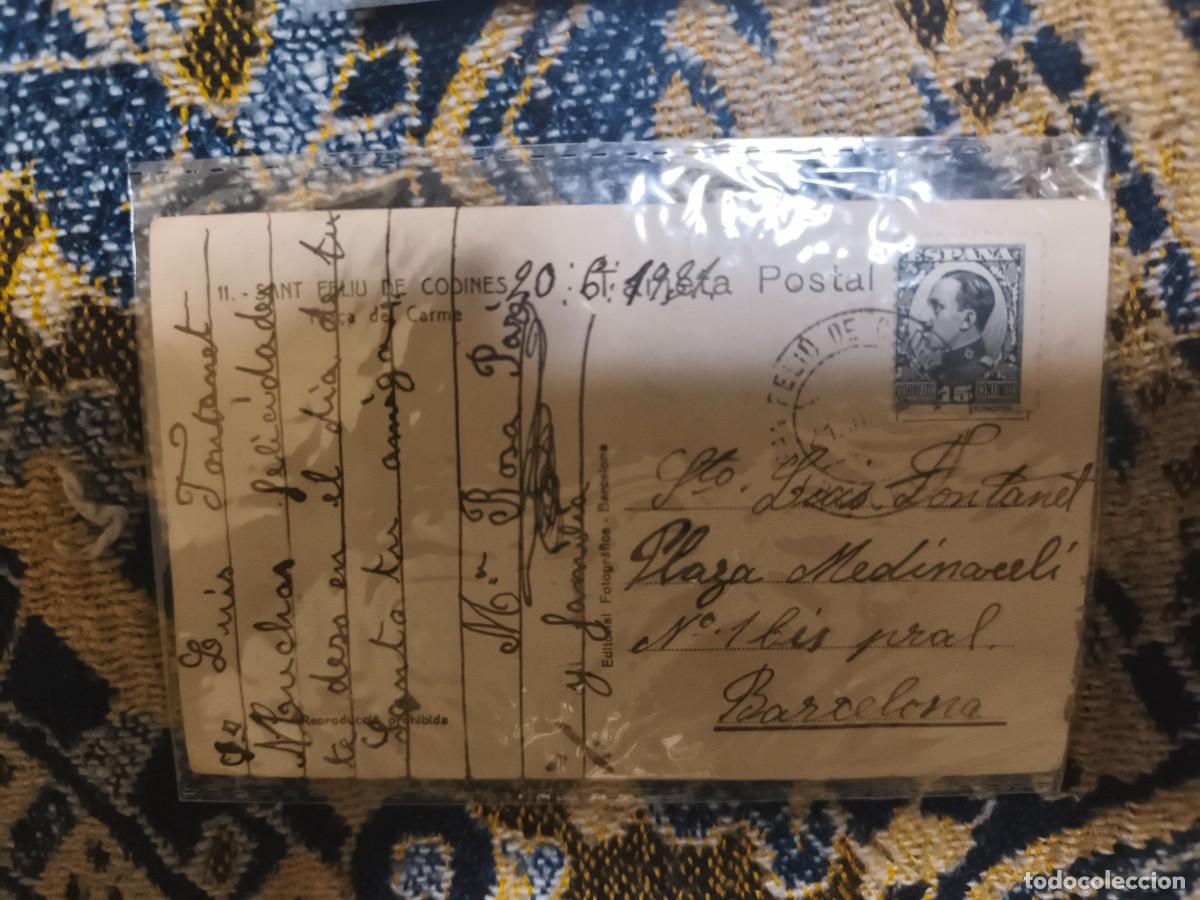 11. - SANT FELIU DE CODINES
Plaça del Carme
20 : 6 : 1931.
Tarjeta Postal
ESPAÑA
CORREOS 15 CENTIMOS
FELIU DE
Sr. Luis Fontanet
Muchas felicidades
te deseo en el dia de tu
Santo tu amiga
Mª Rosa
y familia
Reproducció prohibida
Editorial Fotográfica - Barcelona
Sto. Luis Fontanet
Plaza Medinaceli
Nº 1 bis pral.
Barcelona
todocoleccion